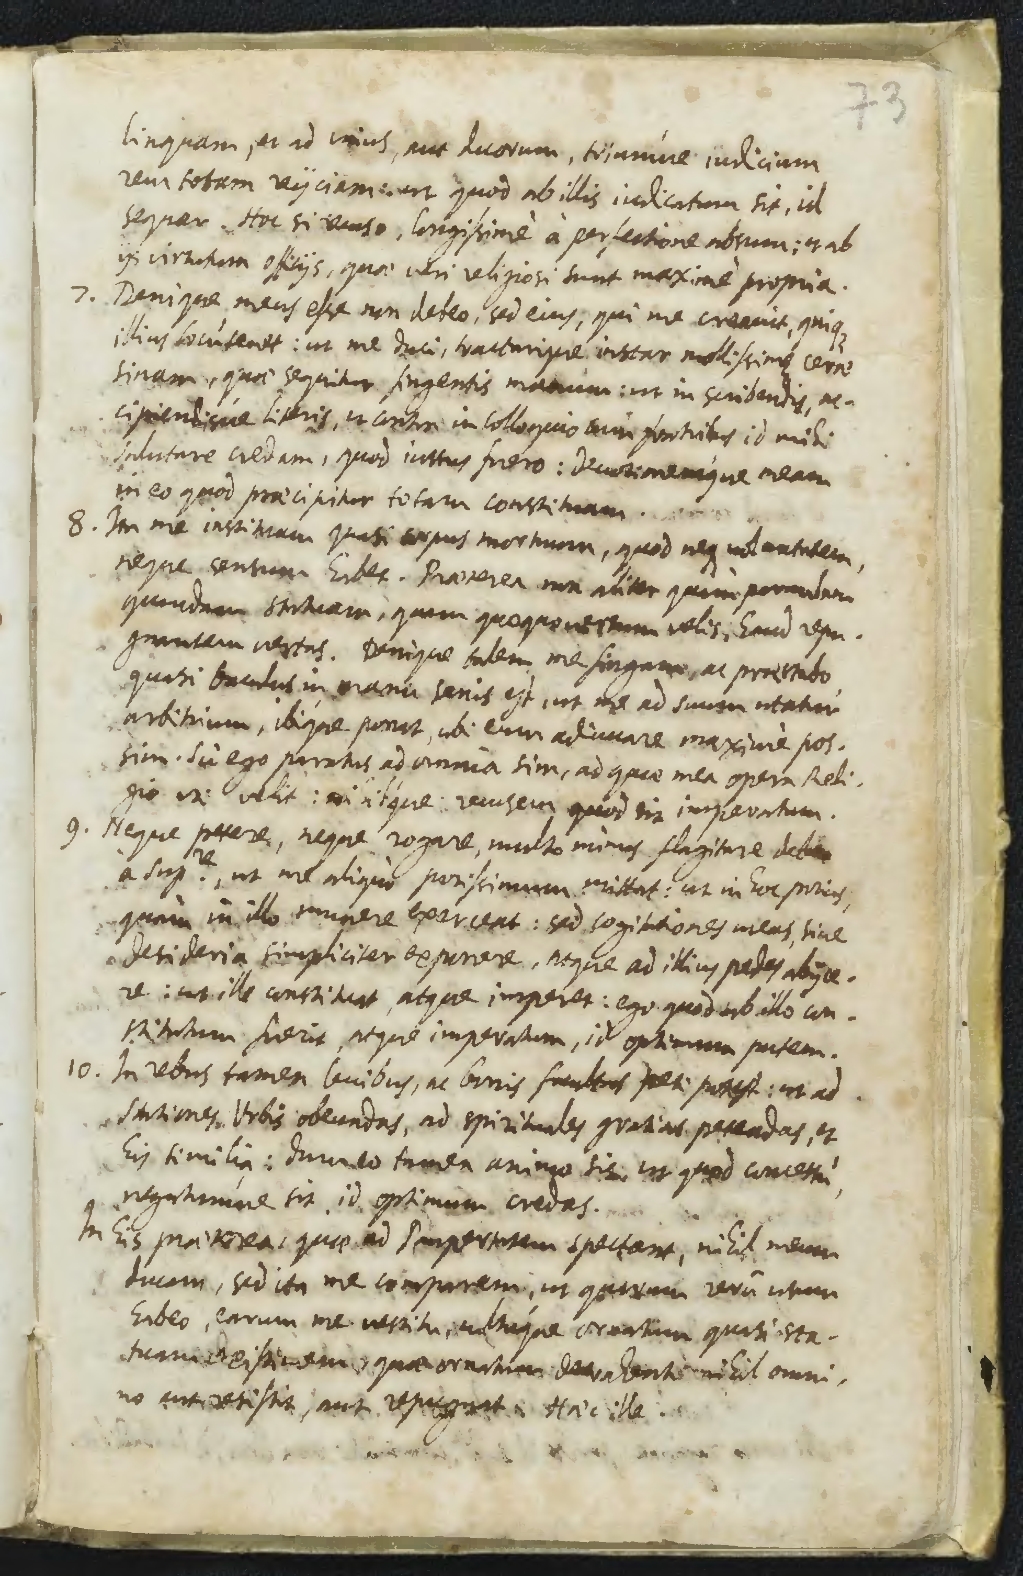 73
linquam, et ad unius, aut duorum, triumúe iudicium
rem totam reijciam: ut quod ab illis iudicatum sit, id
sequar. Hoc si recuso, longissimè à perfectione absum; et ab
ijs virtutum officijs, quae veri religiosi sunt maximè propria.
7. Denique meus esse non debeo, sed eius, qui me creauit, quiq;
illius locú tenet: ut me duci, tractarique instar mollissimę cerae
sinam, quae sequitur fingentis manum: ut in scribendis, ac-
cipiendisúe literis, ut contra in colloquio cùm patribus id mihi
salutare credam, quod iussus fuero: deuotionemque meam
in eo quod praecipitur totam constituam.
8. Ita me instituam quasi corpus mortuum, quod neq uoluntatem,
neque sensum habet. Praeterea non aliter quàm paruulam
quandam statuam, quam quoquo uersum uelis, haud repu-
gnantem uertas. Denique talem me fingam, ac praestabo,
quasi baculus in manu senis est, ut me ad suum utatur
arbitrium, ibique ponat, ubi eum adiuuare maximè pos-
sim. Sic ego paratus ad omnia sim, ad quae mea opera Reli-
gio uti velit: nihilque recusem quod sit imperatum.
9. Neque petere, neque rogare, multo minus flagitare debeo
à Sup.re, ut me aliquò potissimum mittat: ut in hoc potius,
quàm in illo munere exerceat: sed cogitationes meas, siue
desideria simpliciter exponere, atque ad illius pedes abijce-
re: ut ille constituat, atque imperet: ego quod ab illo con-
stitutum fuerit, atque imperatum, id optimum putem.
10. In rebus tamen leuibus, ac bonis facultas peti potest: ut ad
Stationes Vrbis obeundas, ad spirituales gratias petendas, et
his similia: dum eo tamen animo sis, ut quod concessú,
negatumúe sit, id optimum credas.
In his praeterea, quae ad Paupertatem spectant, nihil meum
ducam, sed ita me comparem, ut quarum rerū usum
habeo, earum me uestitu, cultúque ornatum quasi sta-
tuam existimem, quae ornatum detrahenti nihil omni-
no aut resistit, aut repugnat. Haec ille.